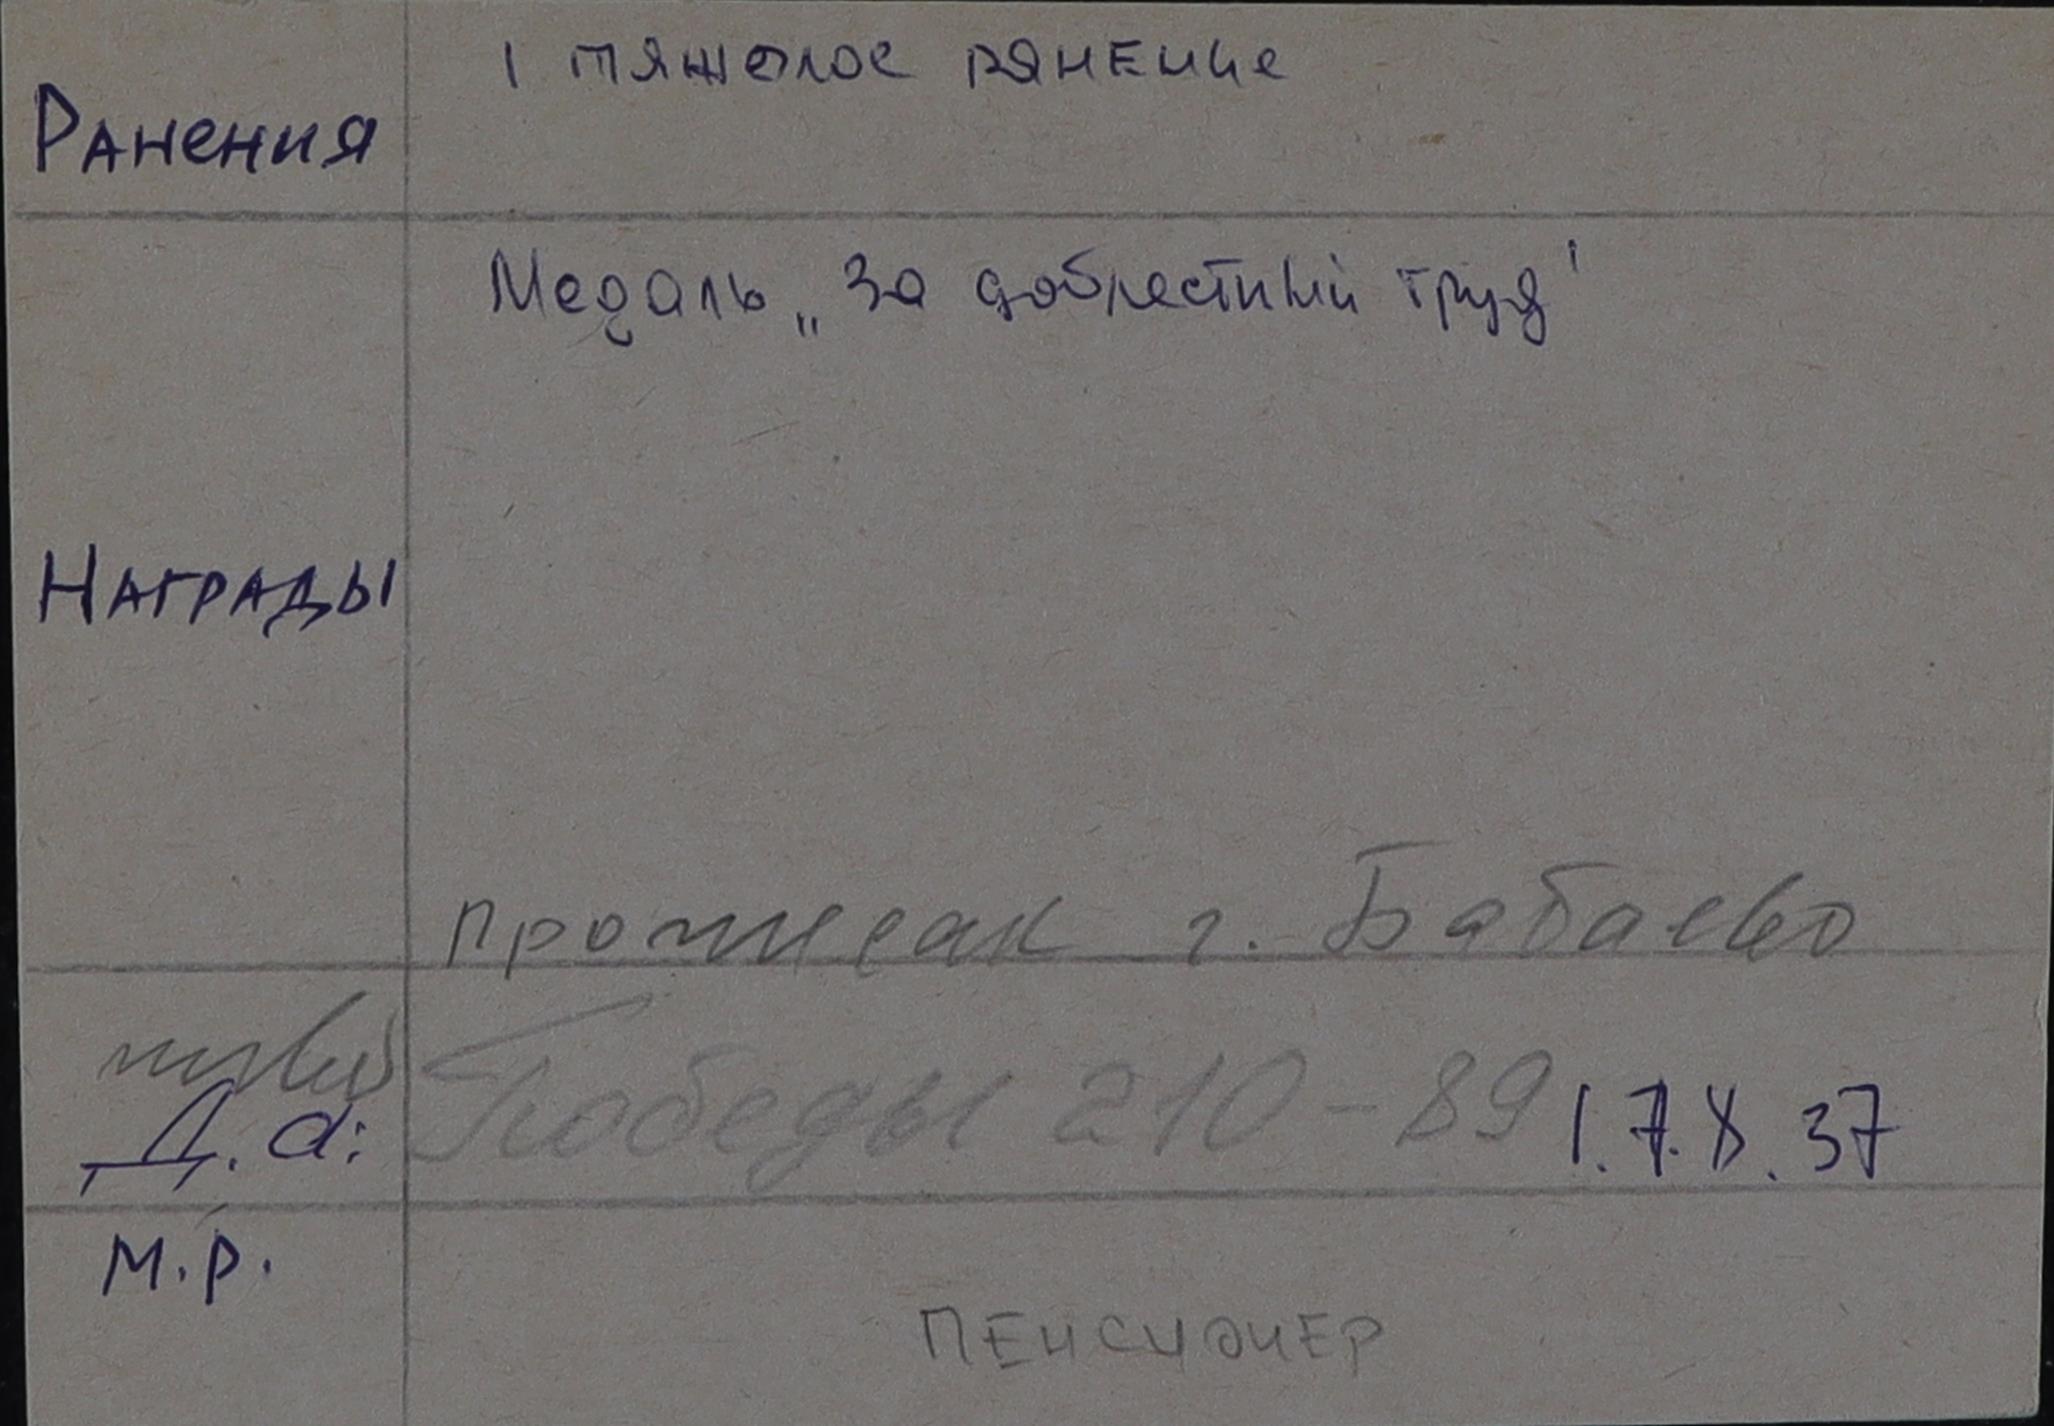 Ранения
1 тяжолое ранение
Награды
Медаль „За добрестный труд"
прописан г. Бабаево
Д.а: Победы 210-89 1.7.X.37
м.р.
пенсионер